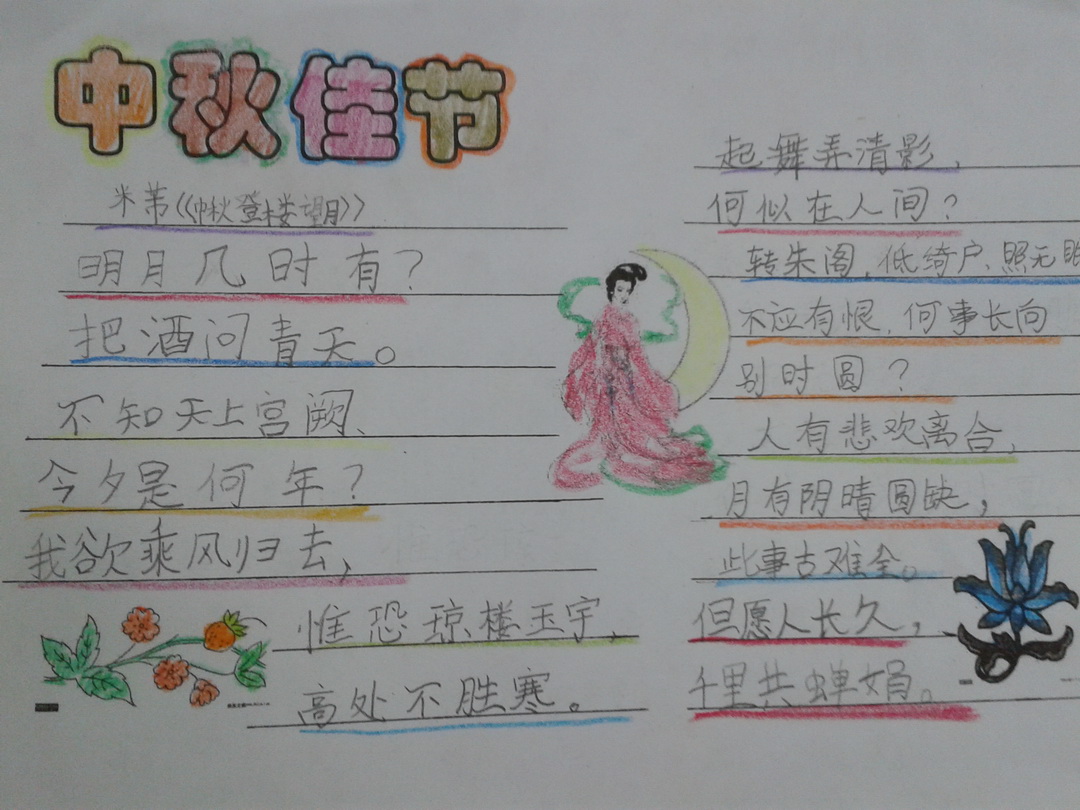 中秋佳节
米芾《中秋登楼望月》
明月几时有?
把酒问青天。
不知天上宫阙、
今夕是何年?
我欲乘风归去,
惟恐琼楼玉宇,
高处不胜寒。
起舞弄清影,
何似在人间?
转朱阁,低绮户、照无眠
不应有恨,何事长向
别时圆?
人有悲欢离合,
月有阴晴圆缺,
此事古难全。
但愿人长久,
千里共蝉娟。